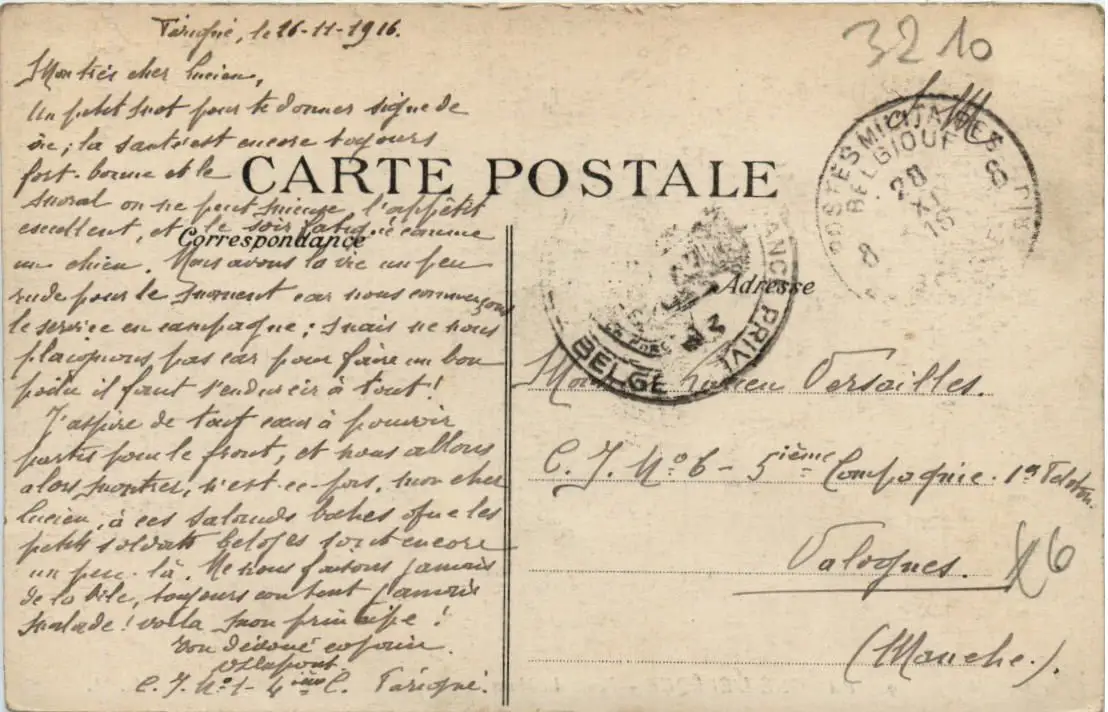 Parigné, le 26-11-1916.
Mon très cher Lucien,
Un petit mot pour te donner signe de
vie ; la santé est encore toujours
fort bonne et le
moral on ne peut mieux l'appétit
excellent, et le soir fatigué comme
un chien. Nous avons la vie un peu
rude pour le moment car nous commençons
le service en campagne ; mais ne nous
plaignons pas car pour faire un bon
poilu il faut s'endurcir à tout !
J'aspire de tout cœur à pouvoir
partir pour le front, et nous allons
alors montrer, n'est-ce-pas, mon cher
Lucien, à ces salauds boches que les
petits soldats belges sont encore
un peu là. Ne nous faisons jamais
de la bile, toujours content jamais
malade ! voila mon principe !
Ton dévoué copain.
C. I. N° 1 - 4ième C. Parigné.
CARTE POSTALE
Correspondance
Adresse
3210
POSTES MILITAIRES
BELGIQUE
28
XI
16
8 8
BELGE PRIVÉ
Lucien Versailles.
C. I. N° 6 - 5ième Compagnie. 1er Peloton.
Valognes.
6
(Manche.)